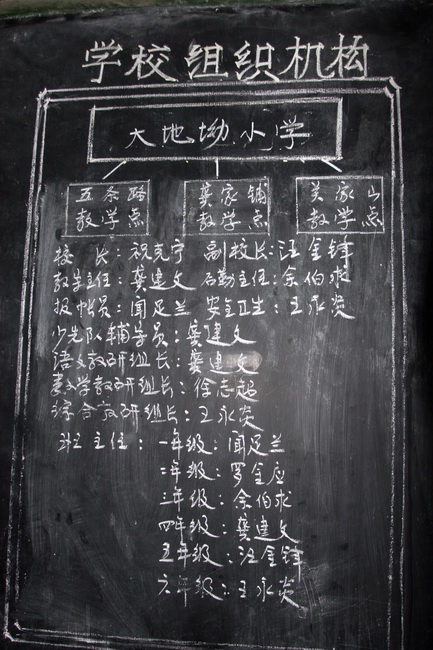 学校组织机构
大地坳小学
五条路 龚家铺 关家山
教学点 教学点 教学点
校 长：祝克宁 副校长：汪金锋
教学主任：龚建文 后勤主任：余伯求
报帐员：闻足兰 安全卫生：王永炎
少先队辅导员：龚建文
语文教研组长：龚建文
数学教研组长：徐志超
综合教研组长：王永炎
班主任：一年级：闻足兰
二年级：罗金应
三年级：余伯求
四年级：龚建文
五年级：汪金锋
六年级：王永炎